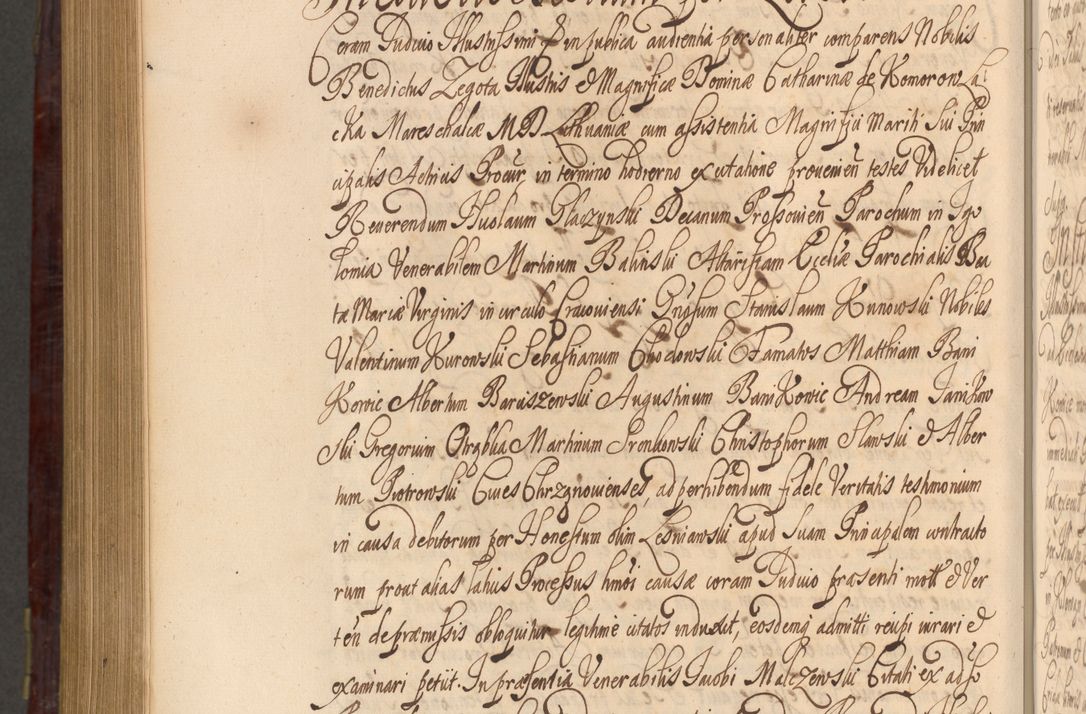 Coram Judicio Illustrissimi & in publica audientia personaliter comparens Nobilis
Benedictus Zegota Illustris & Magnificæ Dominæ Catharinæ de Komorow Ła
cka Mareschalcæ M D Lithuaniæ cum assistentia Magnifici Mariti sui Prin
cipalis Actricis Procur in termino hodierno ex citatione provenien testes Videlicet
Reverendum Nicolaum Placzynski Decanum Prossovien Parochum in Igo
lomia Venerabilem Martinum Balinski Altaristam Eccliæ Parochialis Bea
tæ Mariæ Virginis in circulo Cracoviensi Gnosum Stanislaum Kunowski Nobiles
Valentinum Kurowski Sebastianum Chodowski Famatos Matthiam Bani
Kowic Albertum Baruszewski Augustinum BaniKowic Andream JaniKow
ski Gregorium Otrąbka Martinum Pronkowski Christophorum Slawski & Alber
tum Piotrowski Cives Chrzanovienses, ad perhibendum fidele Veritatis testimonium
in causa debitorum per Honestum olim Lesniawski apud suam Principalem contracto
rum prout alias latius Processus hmoi causæ coram Judicio præsenti mott & Ver
ten de præmissis obloquitur legitime citatos induxit, eosdemq admitti recipi iurari &
examinari petiit. In præsentia Venerabilis Jacobi Malczewski Citati ex adſo